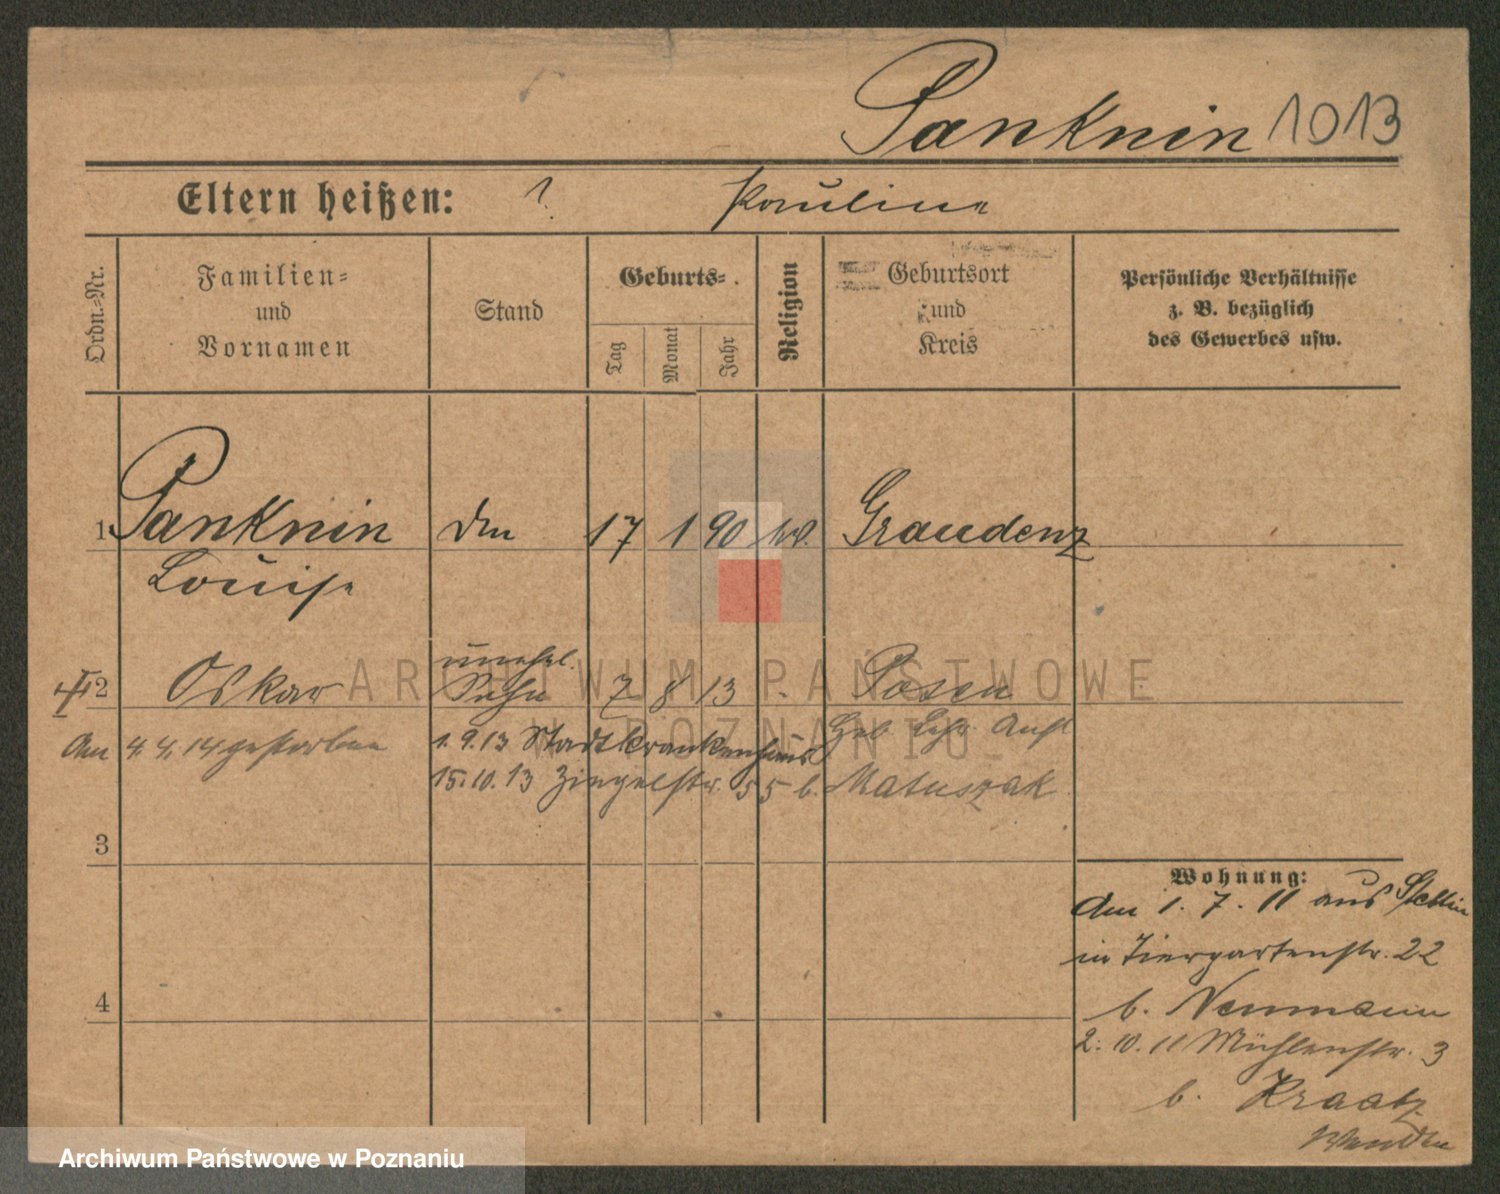 Panknin 1013
Eltern heißen: ? Pauline
Ordn.-Nr.
Familien-
und
Vornamen
Stand
Geburts-
Tag
Monat
Jahr
Religion
Geburtsort
und
Kreis
Persönliche Verhältnisse
z. B. bezüglich
des Gewerbes usw.
1 Panknin 17 1 90 Graudenz
Louise
unehel.
2 Oskar Sohn 7 8 13 Posen
Am 4.4.14 gestorben
1.9.13 Stadtkrankenhaus
15.10.13 Ziegelstr. 55 b. Matuszak
3
Wohnung:
Am 1.7.11 aus Stettin
in Tiergartenstr. 22
b. Neumann
4
2.10.11 Mühlenstr. 3
b. Kraatz
Wenden
ARCHIWUM PAŃSTWOWE
W POZNANIU
Archiwum Państwowe w Poznaniu